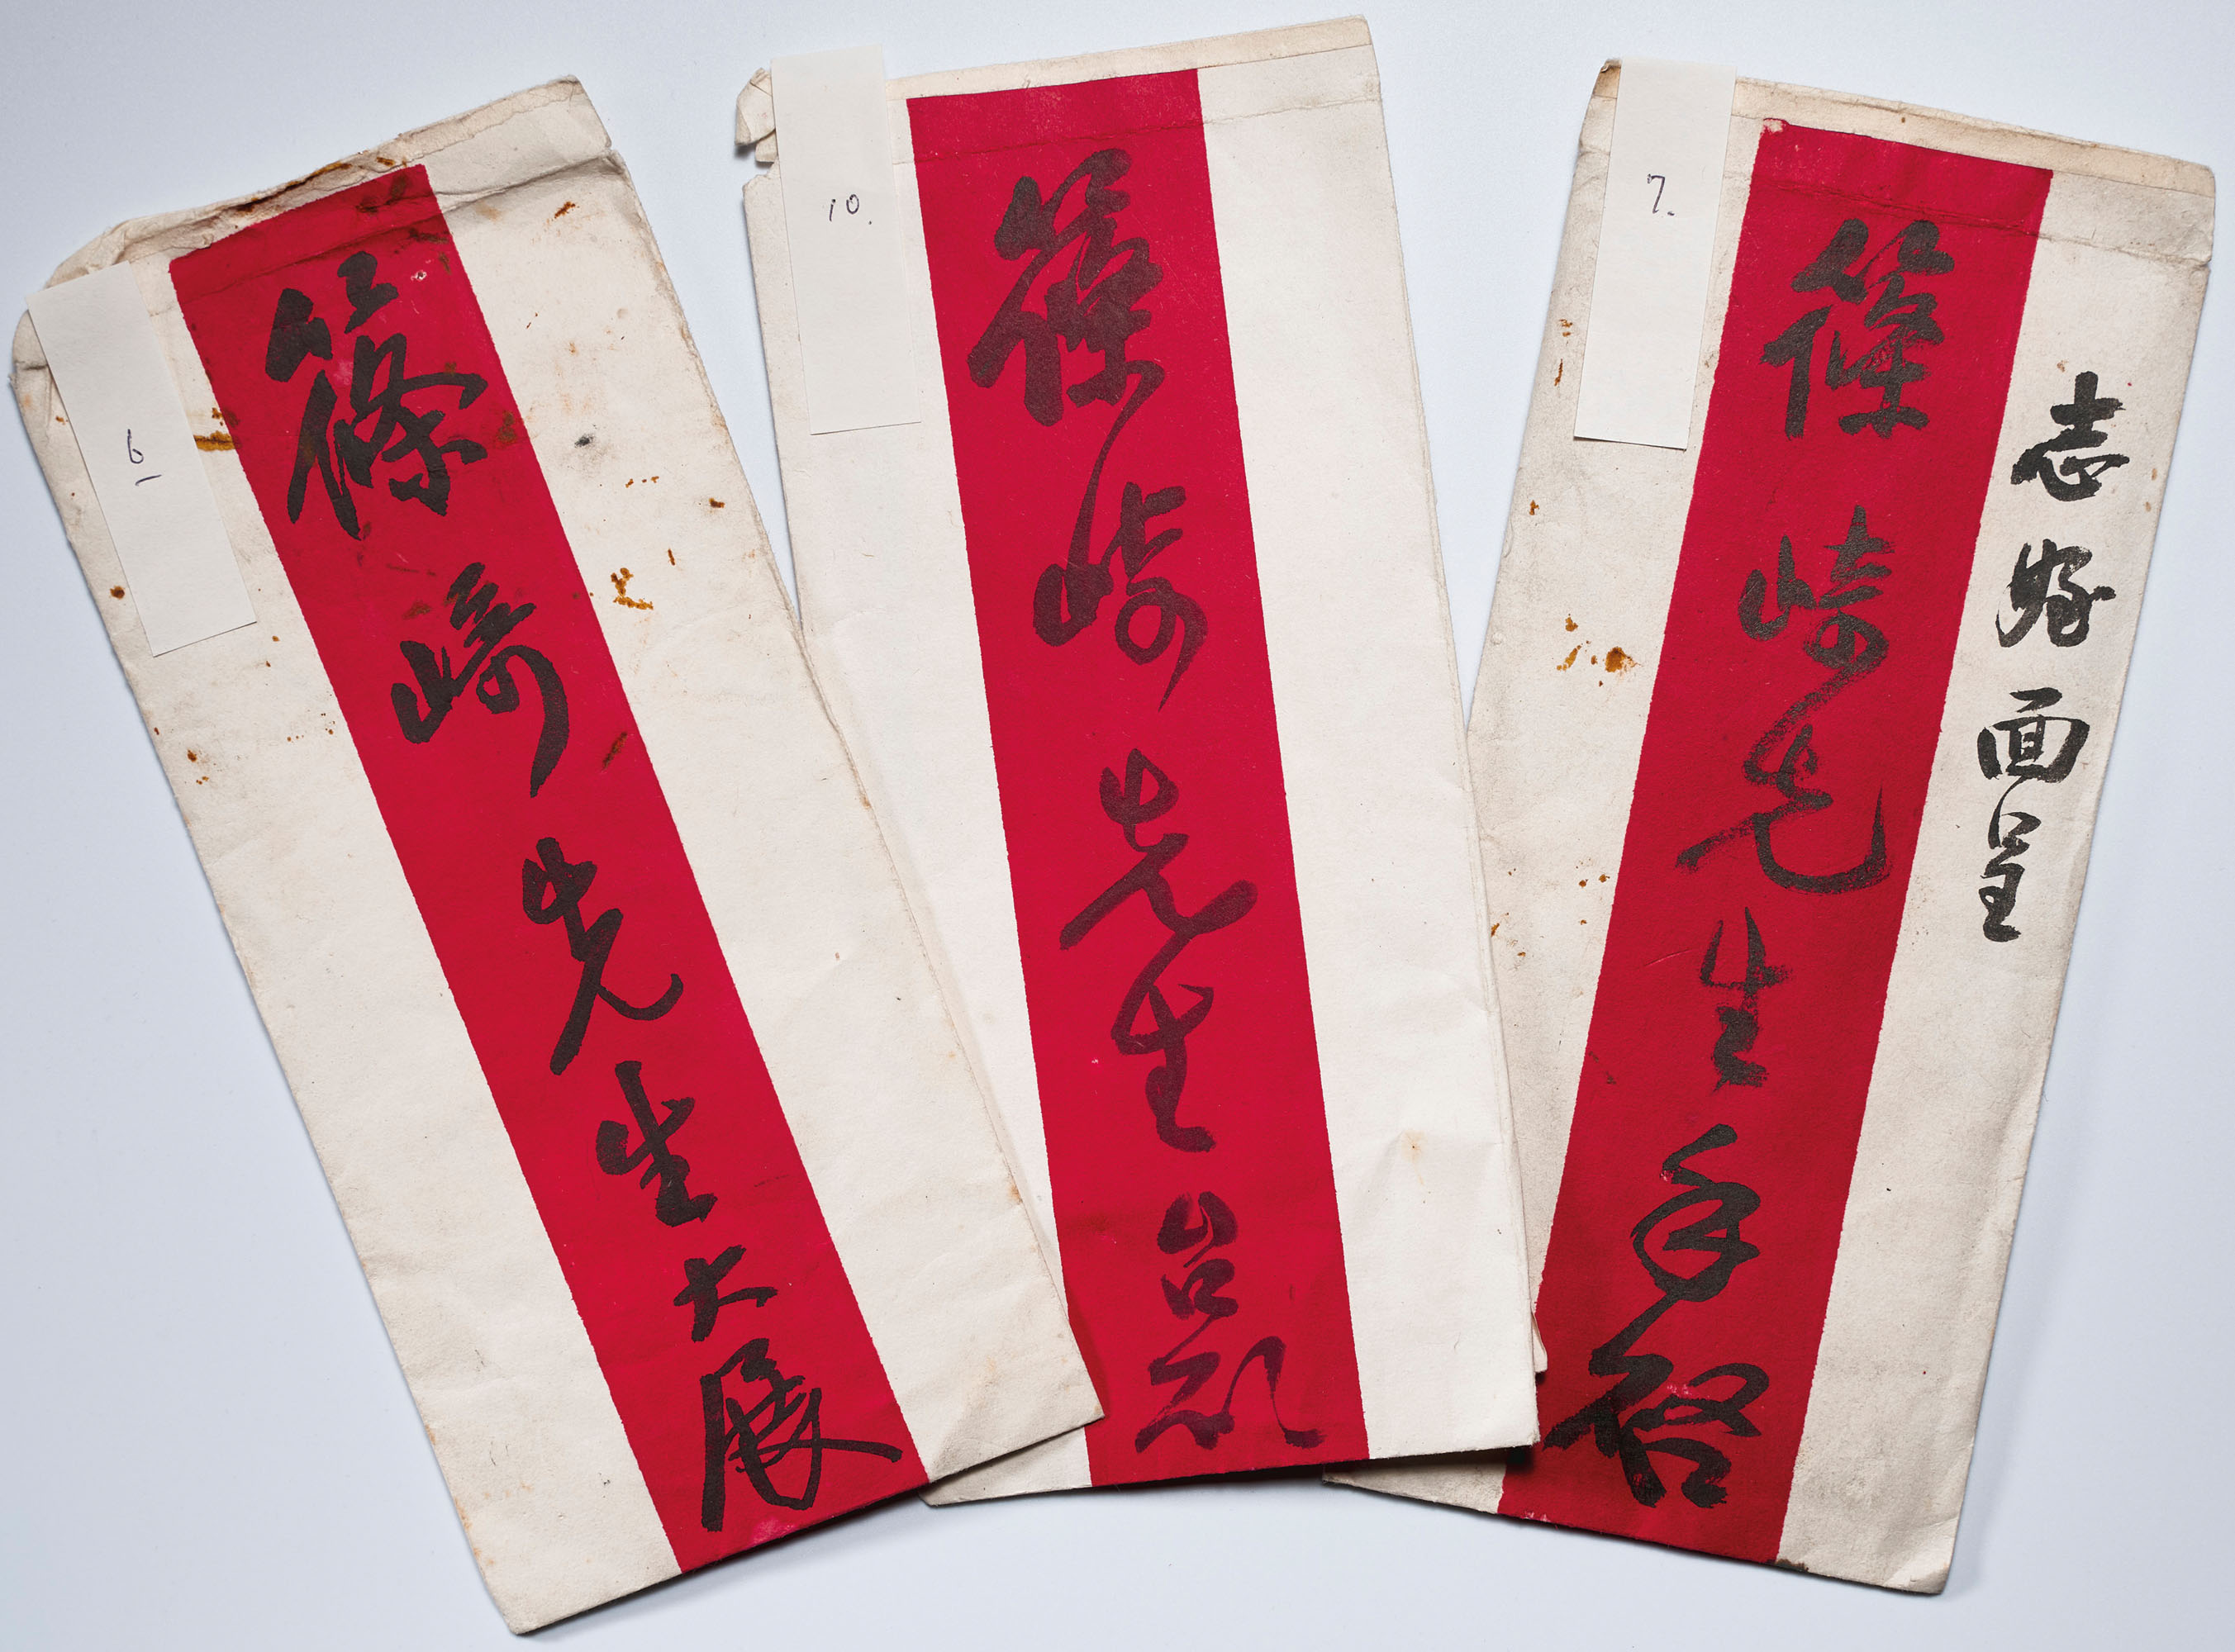 6
篠崎先生大展
10.
篠崎先生台
7.
志 面呈
篠崎先生手啓